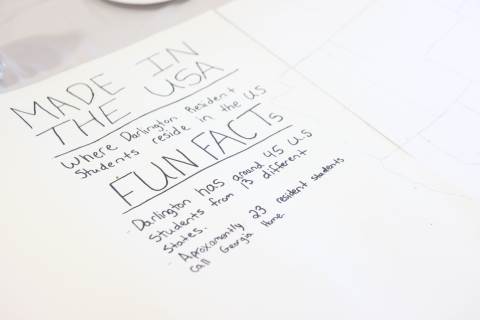 MADE IN
THE USA
Where Darlington Resident
Students reside in the US
FUN FACTs
· Darlington has around 45 U.S
Students from 13 different
States.
· Aproxamently 23 resident students
call Georgia Home.